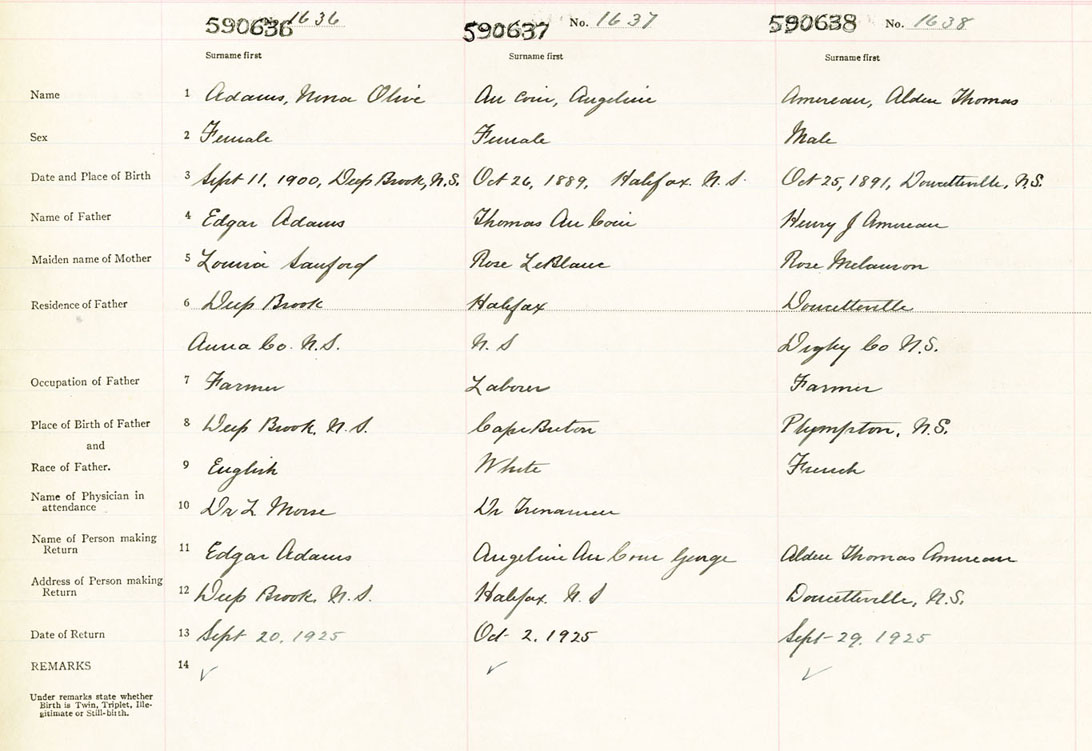 590636 No. 1636 590637 No. 1637 590638 No. 1638
Surname first Surname first Surname first
Name 1 Adams, Nina Olive Au Coin, Angeline Amereau, Alden Thomas
Sex 2 Female Female Male
Date and Place of Birth 3 Sept 11, 1900, Deep Brook, N.S. Oct 26, 1889, Halifax. N.S. Oct 25, 1891, Doucetteville, N.S.
Name of Father 4 Edgar Adams Thomas Au Coin Henry J Amereau
Maiden name of Mother 5 Louisa Sanford Rose LeBlanc Rose Melanson
Residence of Father 6 Deep Brook Halifax Doucetteville
Anna Co. N.S. N.S Digby Co N.S.
Occupation of Father 7 Farmer Laborer Farmer
Place of Birth of Father 8 Deep Brook, N.S. Cape Breton Plympton, N.S.
and
Race of Father. 9 English White French
Name of Physician in
attendance 10 Dr L Morse Dr Trenaman
Name of Person making
Return 11 Edgar Adams Angeline Au Coin George Alden Thomas Amereau
Address of Person making
Return 12 Deep Brook, N.S. Halifax. N.S Doucetteville, N.S.
Date of Return 13 Sept 20, 1925 Oct 2, 1925 Sept 29, 1925
REMARKS 14 ✓ ✓ ✓
Under remarks state whether
Birth is Twin, Triplet, Ille-
gitimate or Still-birth.